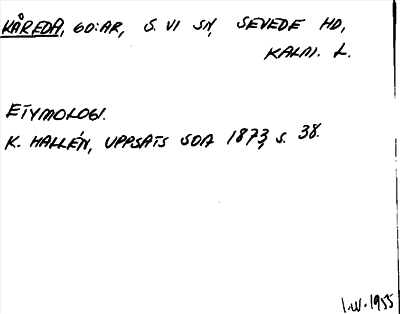 KÅREDA, GD:AR, S. VI SN, SEVEDE HD,
KALM. L.
ETYMOLOGI.
K. HALLÉN, UPPSATS SOA 1873, S. 38.
I.W. 1955